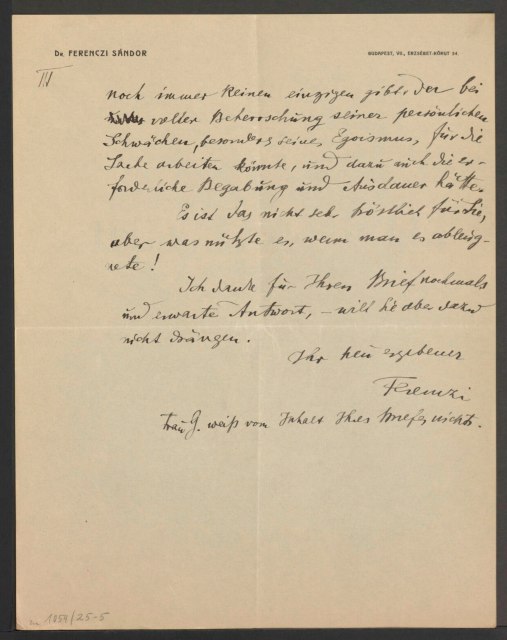 Dr. FERENCZI SÁNDOR
BUDAPEST, VII., ERZSÉBET-KÖRUT 54.
III
noch immer keinen einzigen gibt, der bei
voller Beherrschung seiner persönlichen
Schwächen, besonders seines Egoismus, für die
Sache arbeiten könnte, und dazu auch die er-
forderliche Begabung und Ausdauer hätte.
Es ist das nicht sehr tröstlich für Sie,
aber was nützte es, wenn man es ableug-
nete!
Ich danke für Ihren Brief nochmals
und erwarte Antwort, – will Sie aber dazu
nicht drängen.
Ihr treu ergebener
Ferenczi
Frau G. weiß vom Inhalt Ihres Briefes nichts.
1054/25-5